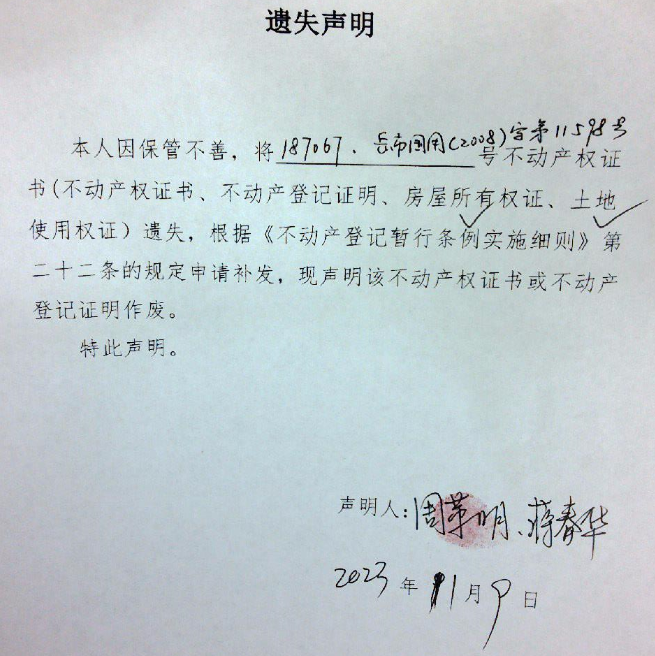 遗失声明
本人因保管不善，将187067、岳市国用(2008)字第11598号号不动产权证
书(不动产权证书、不动产登记证明、房屋所有权证、土地
使用权证）遗失，根据《不动产登记暂行条例实施细则》第
二十二条的规定申请补发，现声明该不动产权证书或不动产
登记证明作废。
特此声明。
声明人：周革明、蒋春华
2023年11月9日